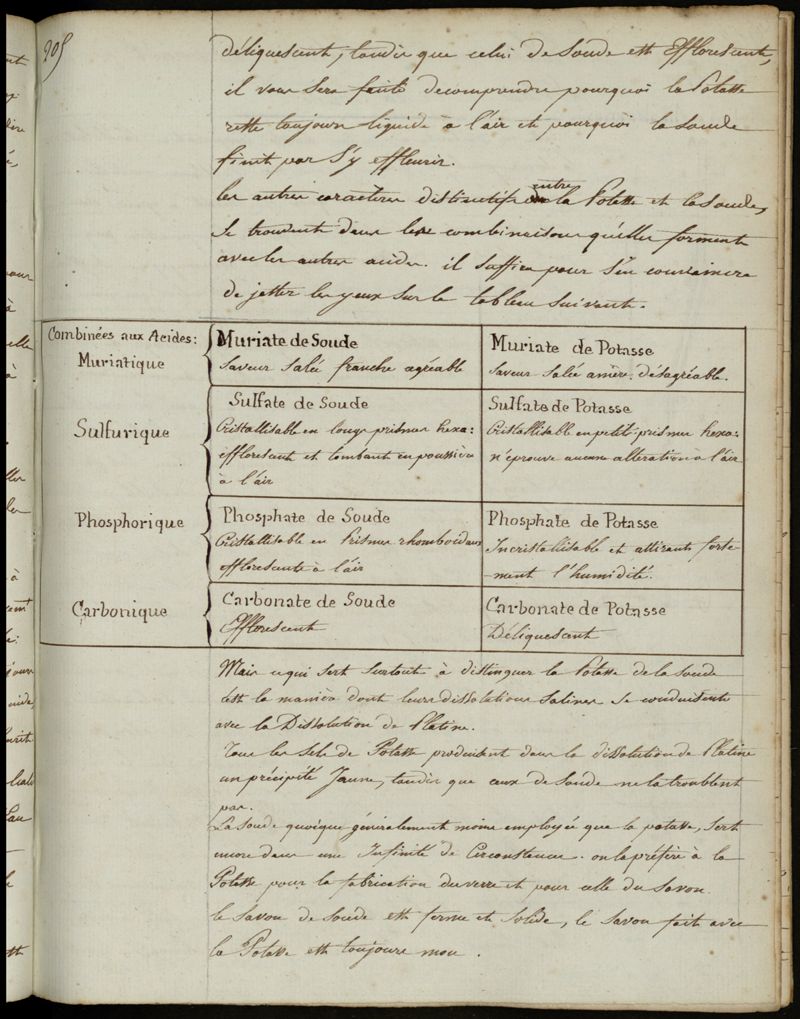 205
déliquescent, tandis que celui de Soude est efflorescent,
il vous sera facile de comprendre pourquoi la Potasse
reste toujours liquide à l'air et pourquoi la soude
finit par s'y effleurir.
les autres caractères distinctifs entre la Potasse et la soude,
se trouvent dans les combinaisons qu'elles forment
avec les autres acides. il suffira pour s'en convaincre
de jetter les yeux sur le tableau suivant.
Combinées aux Acides:
Muriatique
Muriate de Soude
Saveur Salée franche agréable
Muriate de Potasse
Saveur Salée amère désagréable.
Sulfurique
Sulfate de Soude
Cristallisable en longs prismes hexa:
efflorescent et tombant en poussière
à l'air
Sulfate de Potasse
Cristallisable en petits prismes hexa:
n'éprouve aucune altération à l'air
Phosphorique
Phosphate de Soude
Cristallisable en Prismes rhomboidaux
efflorescents à l'air
Phosphate de Potasse
Incristallisable et attirant forte-
-ment l'humidité.
Carbonique
Carbonate de Soude
Efflorescent
Carbonate de Potasse
Déliquescent
Mais ce qui sert surtout à distinguer la Potasse de la soude
c'est la manière dont leurs dissolutions salines se conduisent
avec la Dissolution de Platine.
Tous les sels de Potasse produisent dans la dissolution de Platine
un précipité Jaune, tandis que ceux de Soude ne la troublent
pas.
La Soude quoique généralement moins employée que la potasse, sert
encore dans une Infinité de Circonstances. on la préfère à la
Potasse pour la fabrication du verre et pour celle du Savon.
le Savon de Soude est ferme et Solide, le savon fait avec
la Potasse est toujours mou.